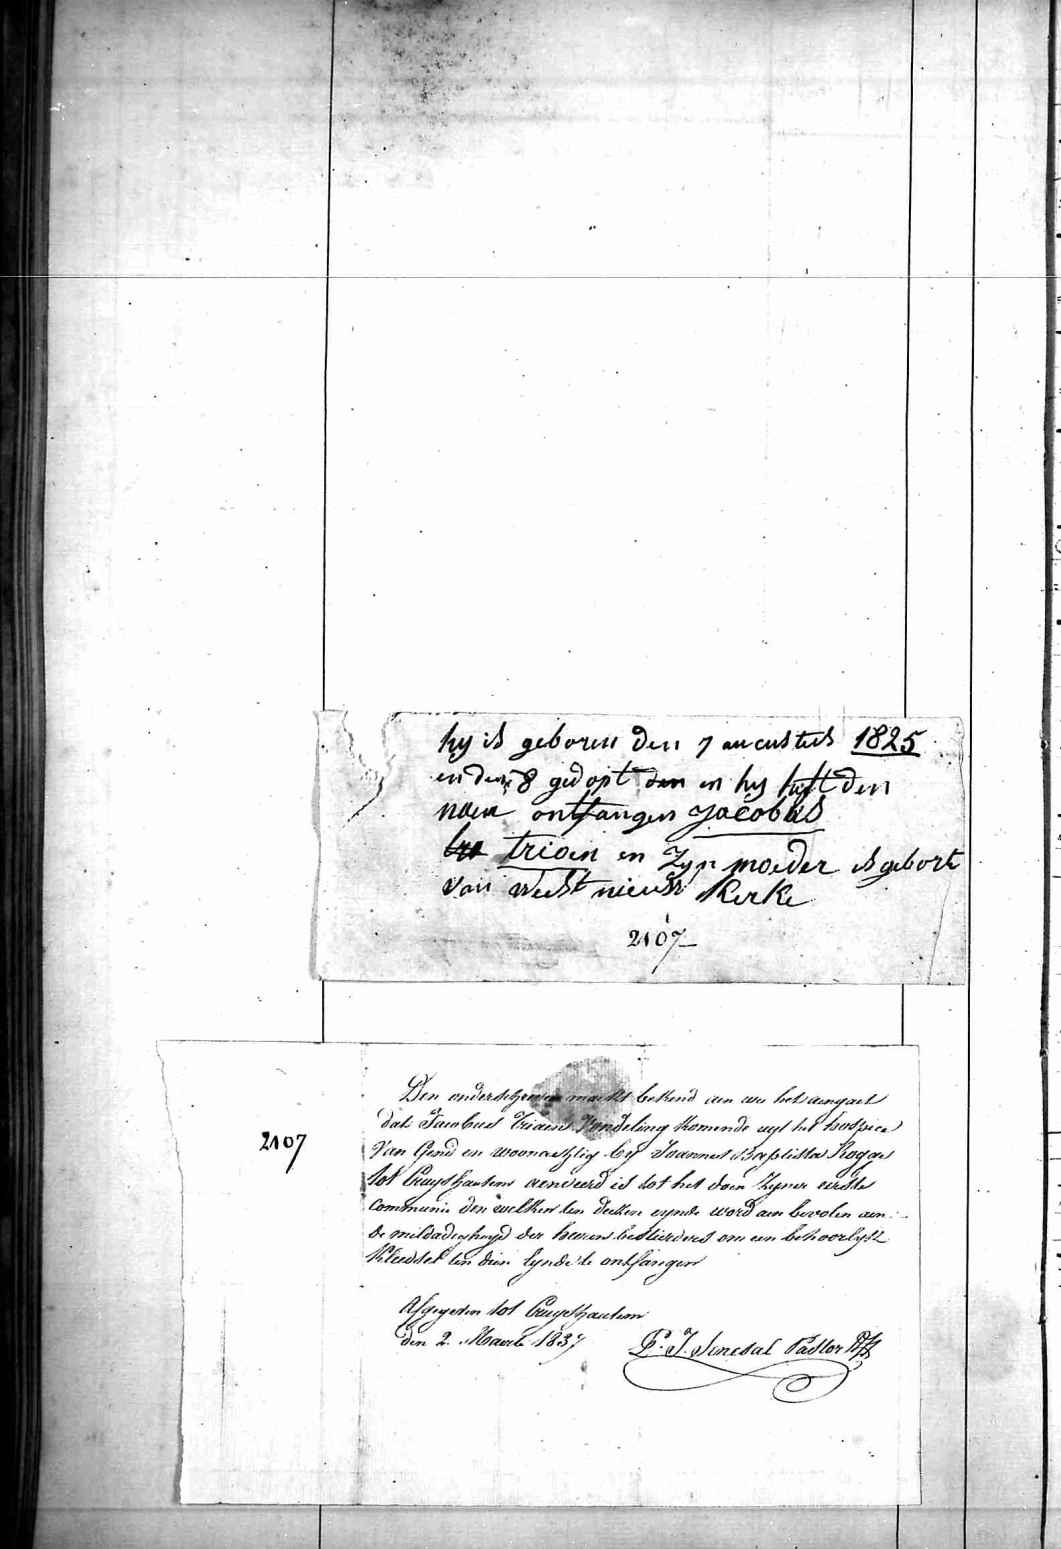 hij is geboren den 7 aucustus 1825
en den 8 gedopt den en hij heft den
naem ontfangen Jacobus
trioen en Zijn moeder is gebort
van west nieuw Kerke
2107
2107
Den onderschreven maekt bekend aen wie het aengaet
dat Jacobus Trioen Vondeling komende uyt het hospice
Van Gend en woonachtig by Joannes Baptista Rogge
tot Cruyshautem aenveerd is tot het doen Zyner eerste
Communie den welken ten dien eynde word aen bevolen aen
de mildadigheyd der heeren bestierders om een behoorlyk
kleedsel ten dien eynde te ontfangen
Afgegeven tot Cruyshautem
den 2. Maerte 1837
P. J. Senesal Pastor